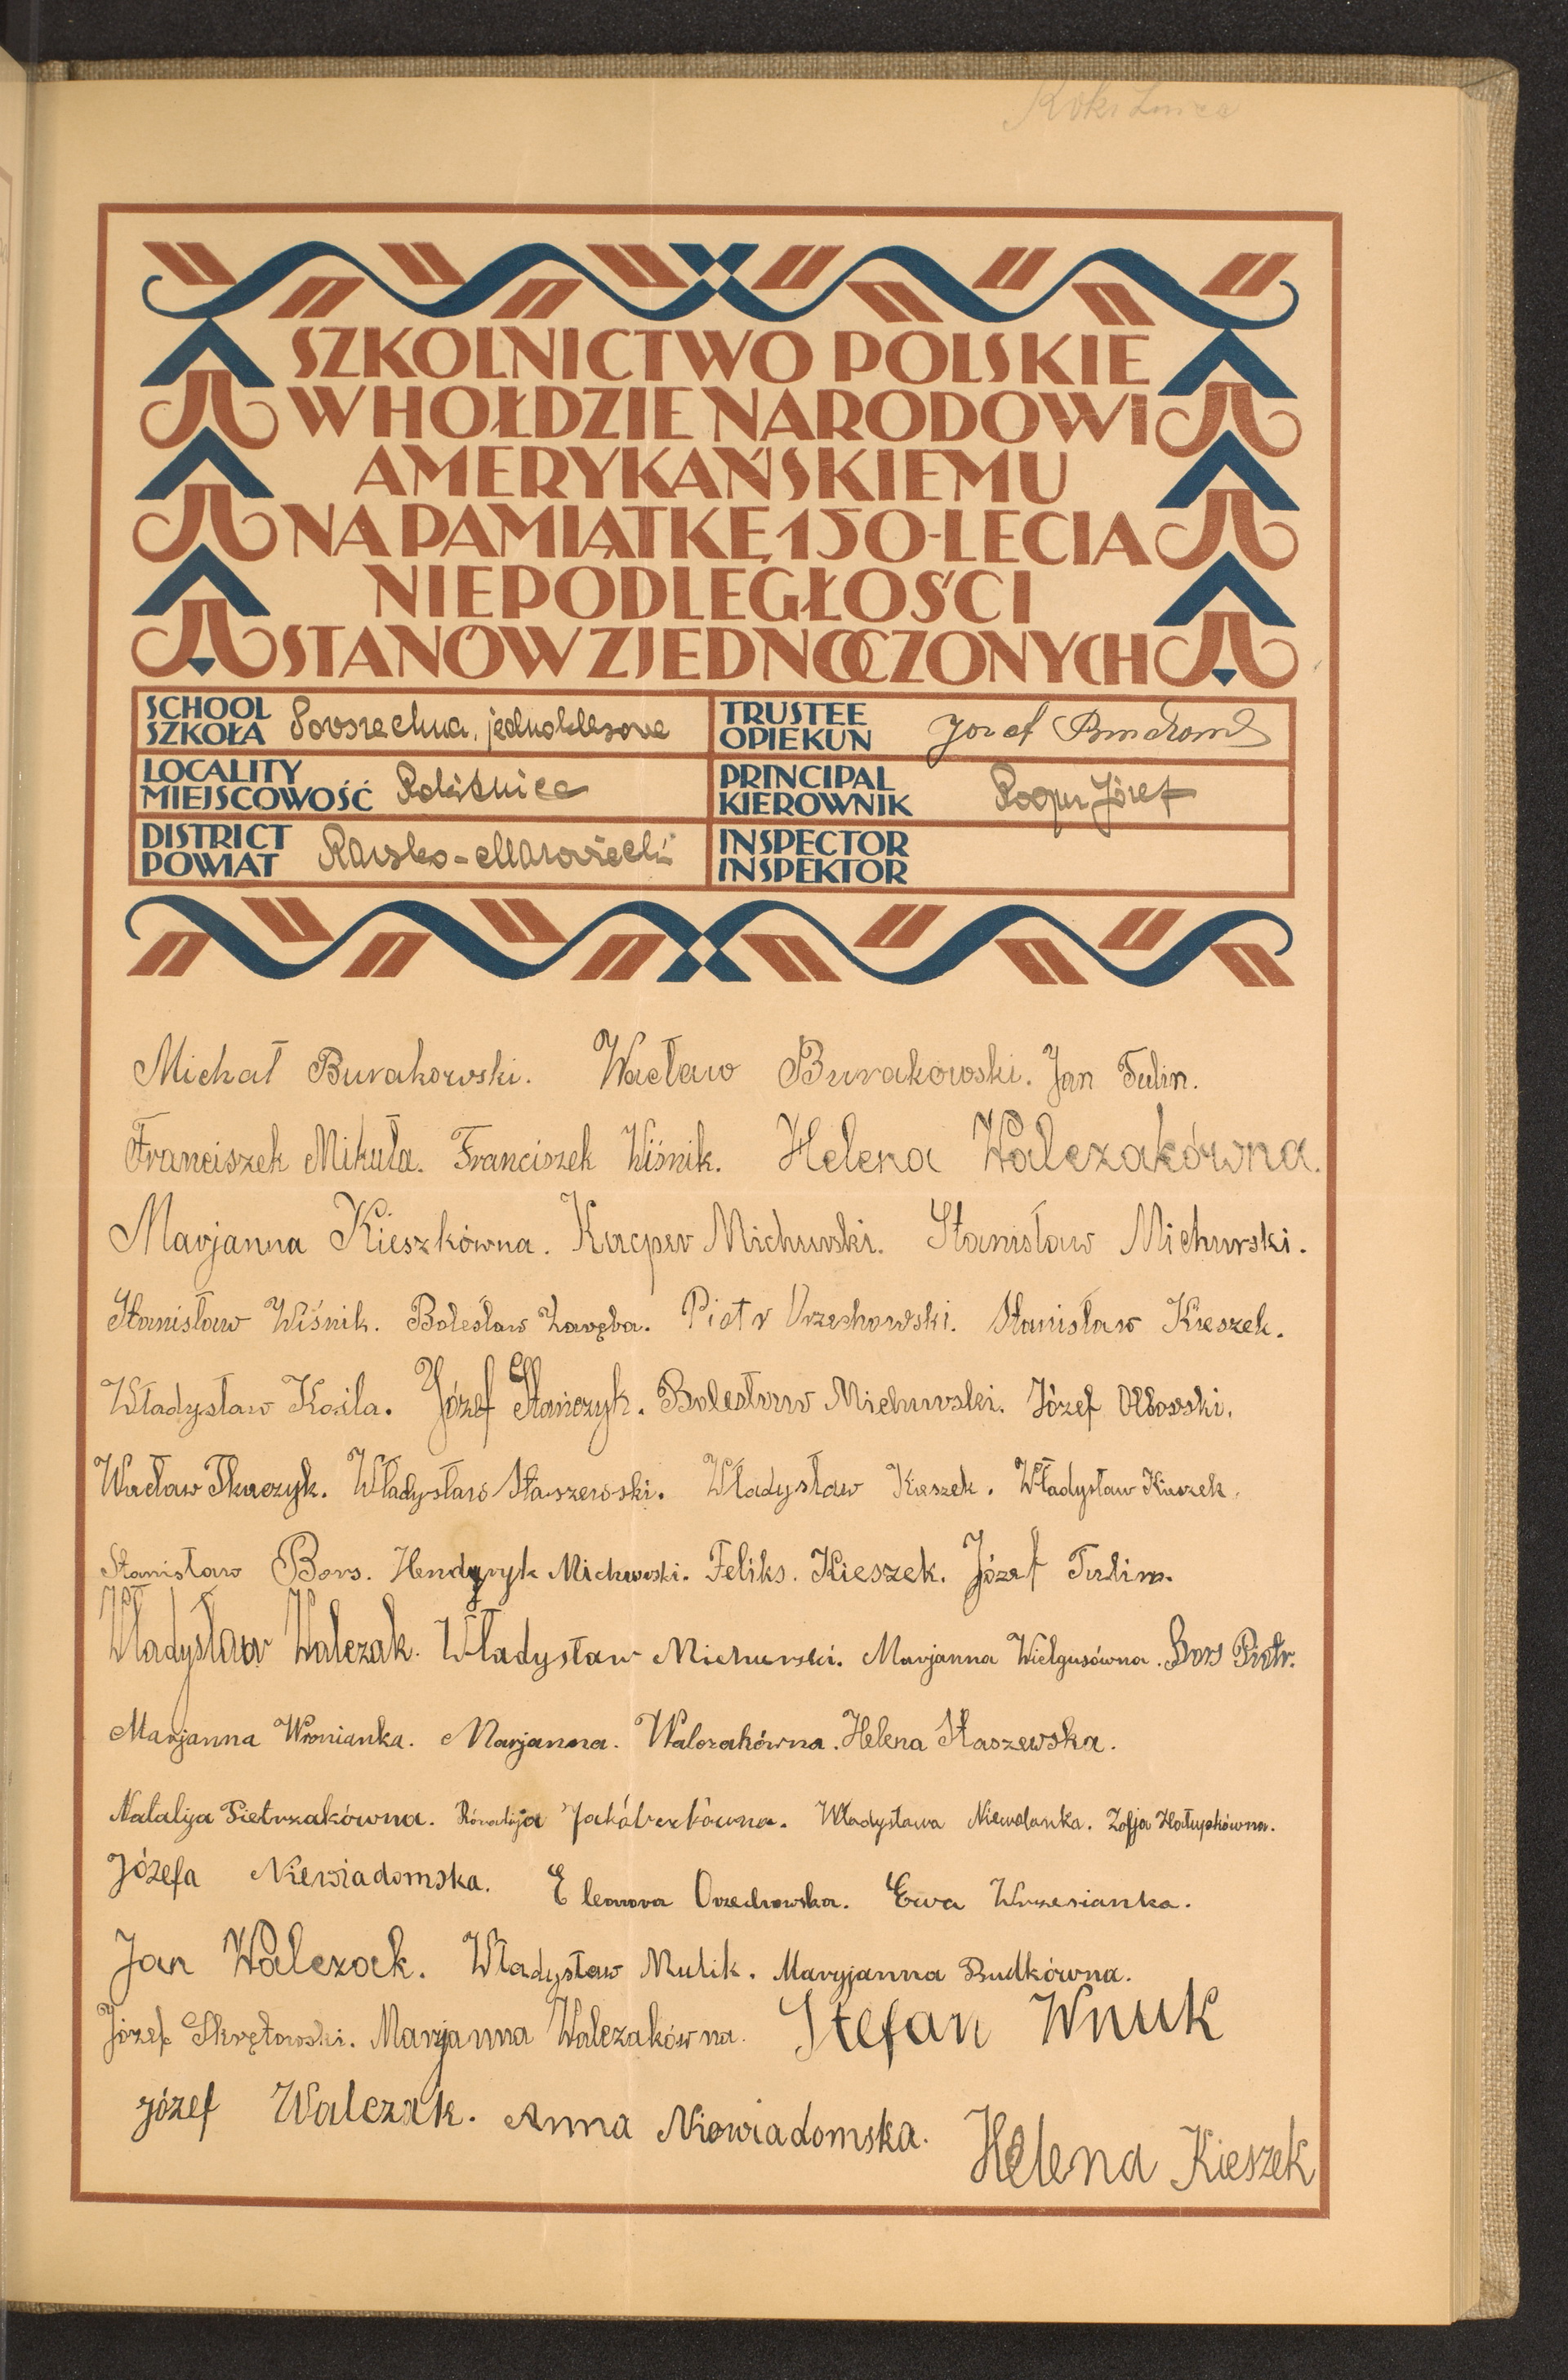 Rokitnica
SZKOLNICTWO POLSKIE
W HOŁDZIE NARODOWI
AMERYKAŃSKIEMU
NA PAMIĄTKĘ 150-LECIA
NIEPODLEGŁOŚCI
STANÓW ZJEDNOCZONYCH
SCHOOL SZKOŁA Powszechna, jednoklasowa
TRUSTEE OPIEKUN Józef
LOCALITY MIEJSCOWOŚĆ Rokitnica
PRINCIPAL KIEROWNIK Józef
DISTRICT POWIAT Rawsko-Mazowiecki
INSPECTOR INSPEKTOR
Michał Burakowski. Wacław Burakowski. Jan Tulin.
Franciszek Mikuła. Franciszek Wiśnik. Helena Walczakówna.
Marjanna Kieszkówna. Kacper Michurski. Stanisław Michurski.
Stanisław Wiśnik. Bolesław Zaręba. Piotr Orzechowski. Stanisław Kieszek.
Władysław Kozila. Józef Stańczyk. Bolesław Michurski. Józef Olborski.
Wacław Tkaczyk. Władysław Staszewski. Władysław Kieszek. Władysław Kieszek.
Stanisław Bors. Hendyryk Michurski. Feliks. Kieszek. Józef Tulim.
Władysław Walczak. Władysław Michurski. Marjanna Wielgusówna. Bors Piotr.
Marjanna Wronianka. Marjanna. Walczakówna. Helena Staszewska.
Natalija Pietrzakówna. Jakóberkówna. Władysława Niewolanka. Zofja Hałupkówna.
Józefa Niewiadomska. Eleonora Orzechowska. Ewa Wrzesianka.
Jan Walczak. Władysław Mulik. Maryjanna Budkówna.
Józef Skrętowski. Marjanna Walczakówna. Stefan Wnuk
Józef Walczak. Anna Niewiadomska. Helena Kieszek